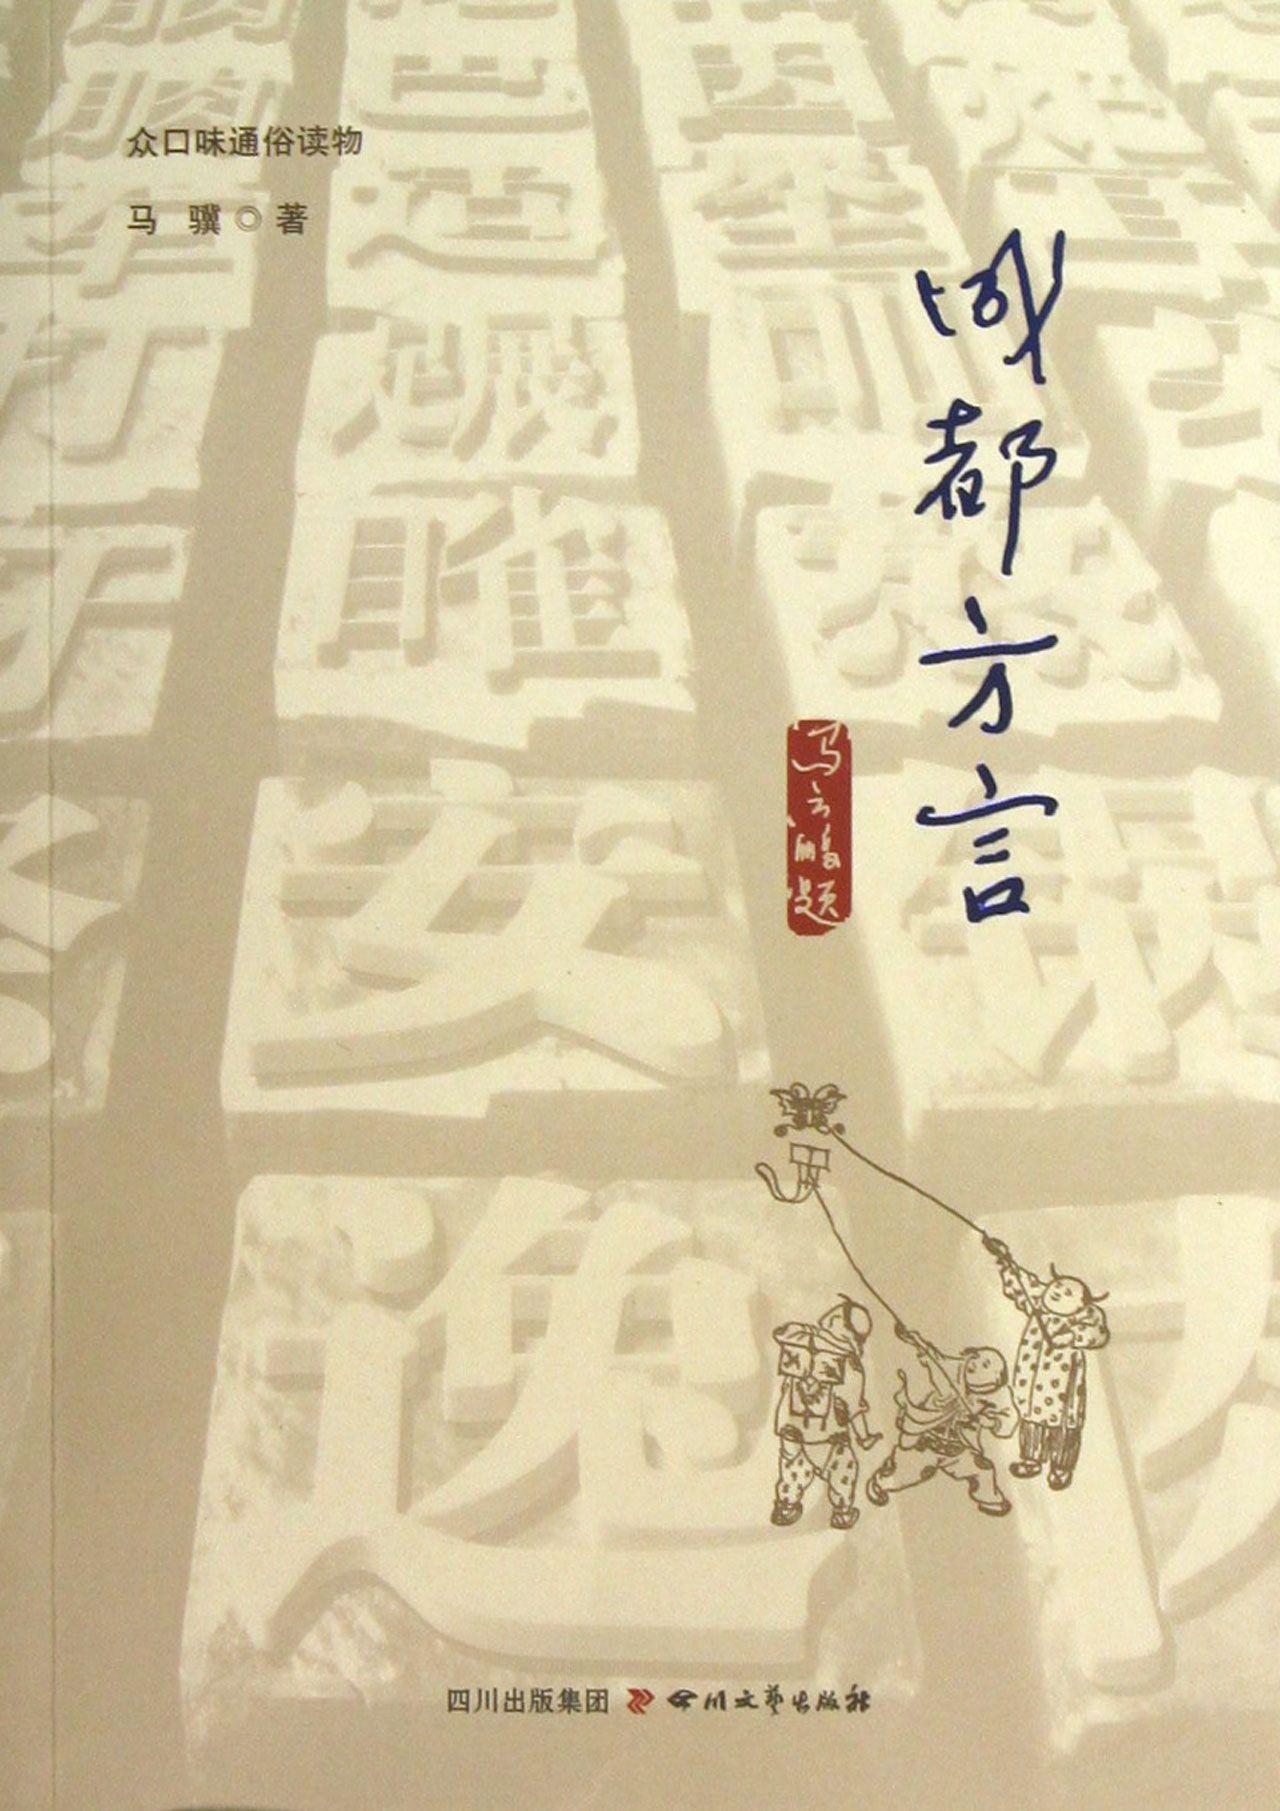 众口味通俗读物
马骥◎著
成都方言
马云鹏题
四川出版集团 四川文艺出版社